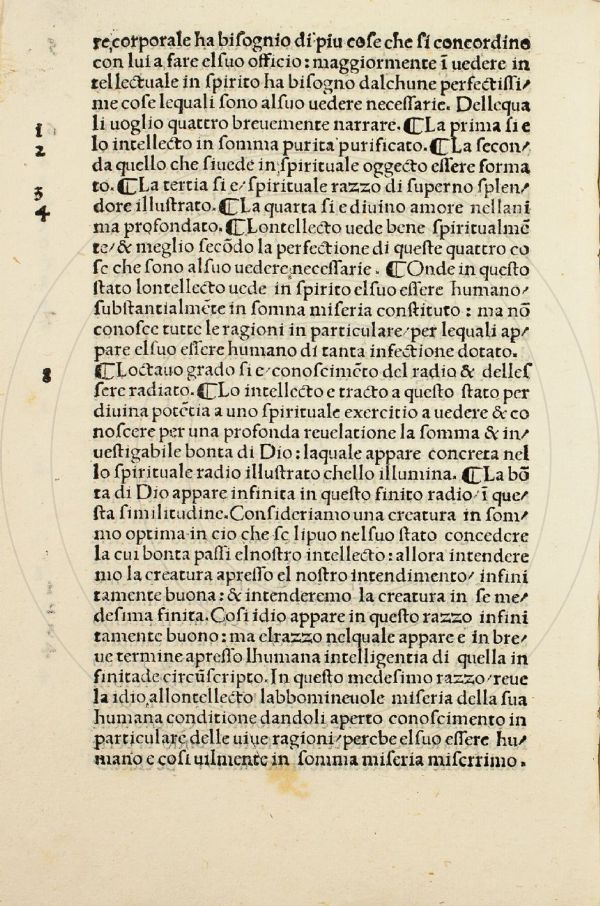 re corporale ha bisognio di piu cose che si concordino
con lui a fare elsuo officio : maggiormente ī uedere in
tellectuale in spirito ha bisogno dalchune perfectissi⸗
me cose lequali sono alsuo uedere necessarie. Dellequa
1 li uoglio quattro breuemente narrare. ¶ La prima si e
2 lo intellecto in somma purita purificato. ¶ La secon⸗
da quello che siuede in spirituale oggecto essere forma
3 to. ¶ La tertia si e/ spirituale razzo di superno splen⸗
4 dore illustrato. ¶ La quarta si e diuino amore nellani
ma profondato. ¶ Lontellecto uede bene spiritualmē
te/ & meglio secōdo la perfectione di queste quattro co
se che sono alsuo uedere necessarie. ¶ Onde in questo
stato lontellecto uede in spirito elsuo essere humano/
substantialmēte in somna miseria constituto : ma nō
conosce tutte le ragioni in particulare/ per lequali ap⸗
pare elsuo essere humano di tanta infectione dotato.
8 ¶ Loctauo grado si e/ conoscimēto del radio & delles
sere radiato. ¶ Lo intellecto e tracto a questo stato per
diuina potētia a uno spirituale exercitio a uedere & co
noscere per una profonda reuelatione la somma & in⸗
uestigabile bonta di Dio : laquale appare concreta nel
lo spirituale radio illustrato chello illumina. ¶ La bō
ta di Dio appare infinita in questo finito radio/ ī que⸗
sta similitudine. Consideriamo una creatura in som⸗
mo optima in cio che se lipuo nelsuo stato concedere
la cui bonta passi elnostro intellecto : allora intendere
mo la creatura apresso el nostro intendimento/ infini
tamente buona : & intenderemo la creatura in se me⸗
desima finita. Cosi idio appare in questo razzo infini
tamente buono : ma elrazzo nelquale appare e in bre⸗
ue termine apresso lhumana intelligentia di quella in
finitade circūscripto. In questo medesimo razzo/ reue
la idio allontellecto labbomineuole miseria della sua
humana conditione dandoli aperto conoscimento in
particulare delle uiue ragioni/ perche elsuo essere hu⸗
mano e cosi uilmente in somma miseria miserrimo.